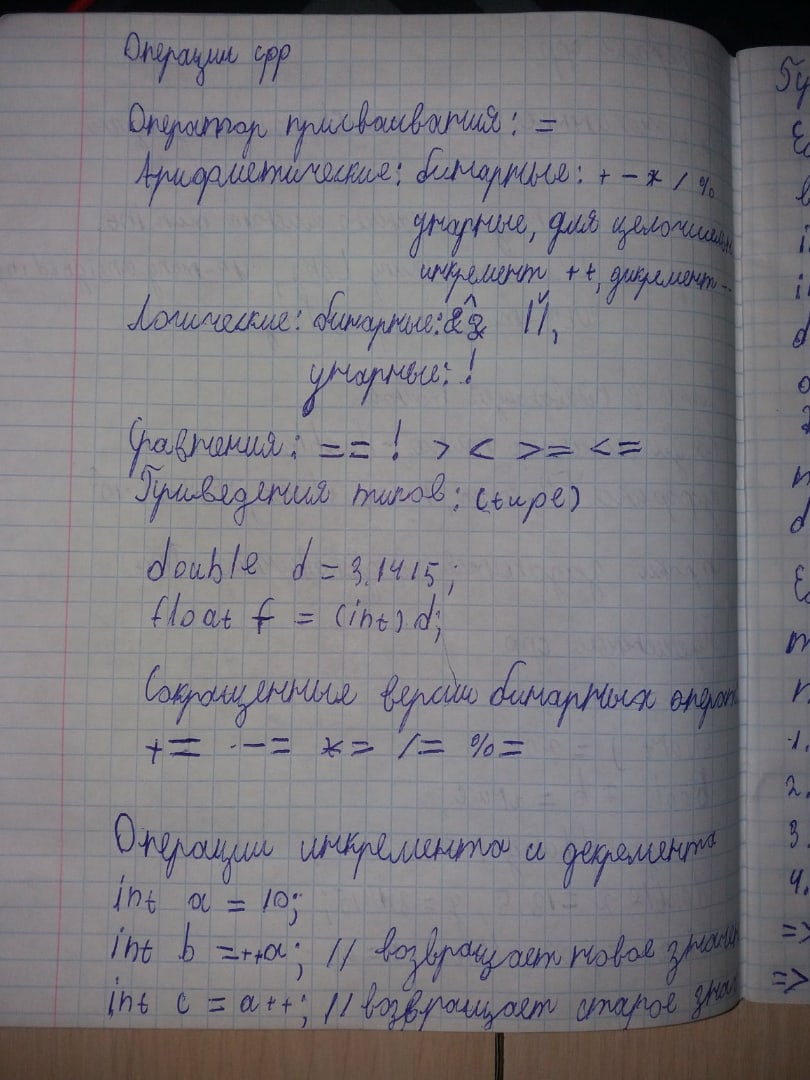 Операции cpp
Оператор присваивания: =
Арифметические: бинарные: + - * / %
унарные, для целочислен
инкремент ++, дикремент --
Логические: бинарные: && ||,
унарные: !
Сравнения: == ! > < >= <=
Приведения типов: (tupe)
double d = 3.1415;
float f = (int) d;
Сокращенные версии бинарных операт
+= -= *= /= %=
Операции инкремента и декремента
int a = 10;
int b = ++a; // возвращает новое значен
int c = a++; // возвращает старое знач
1.
2.
3.
4.
=>
=>